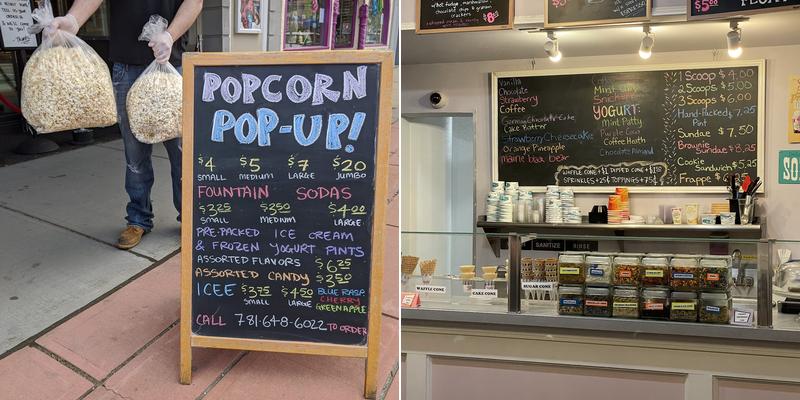 POPCORN
POP-UP!
$4 $5 $7 $20
SMALL MEDIUM LARGE JUMBO
FOUNTAIN SODAS
$3.25 $3.50 $4.00
SMALL MEDIUM LARGE
PRE-PACKED ICE CREAM
& FROZEN YOGURT PINTS
ASSORTED FLAVORS $6.25
ASSORTED CANDY $3.50
ICEE $3.75 $4.50 BLUE RASP
SMALL LARGE CHERRY
GREEN APPLE
CALL 781-648-6022 TO ORDER
graham
crackers
$5.00
Vanilla
Chocolate
Strawberry
Coffee
German Chocolate Cake
Cake Batter
Strawberry Cheesecake
Orange Pineapple
Maine black bear
Mint Chip
YOGURT:
Mint Patty
Purple Cow
Coffee Heath
Chocolate Almond
WAFFLE CONE +$1 DIPPED CONE +$1.50
SPRINKLES +25¢ TOPPINGS +75¢
1 Scoop $4.00
2 Scoops $5.00
3 Scoops $6.00
Hand-Packed $7.25
Pint
Sundae $7.50
Brownie
Sundae $8.25
Cookie
Sandwich $5.25
Frappe
SANITIZE RINSE
WAFFLE CONE
CAKE CONE
SUGAR CONE
SO